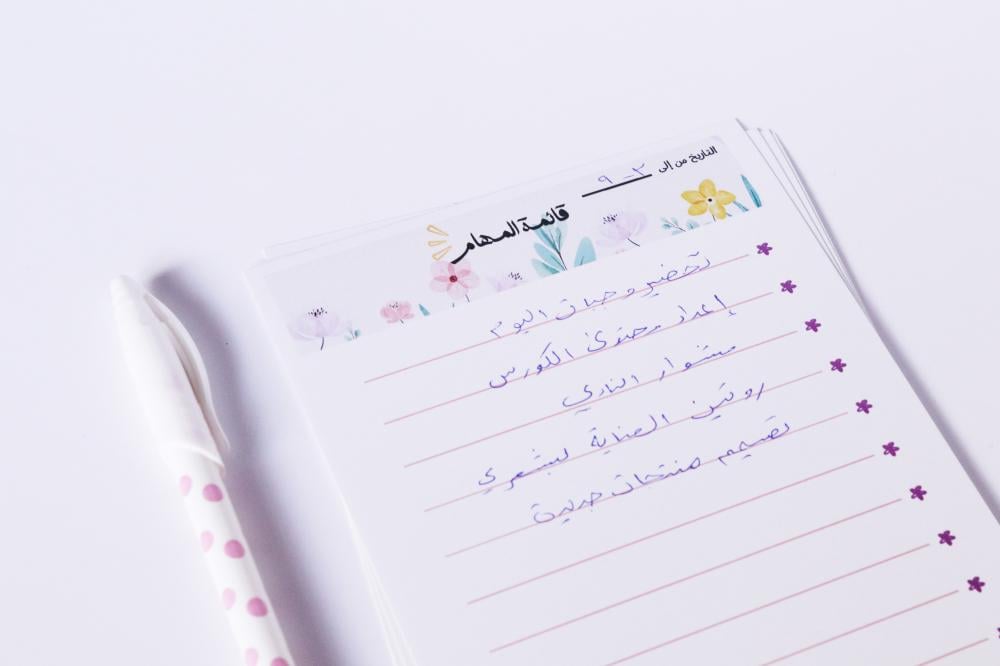 التاريخ من إلى ٢ - ٩
قائمة المهام
تحضير وجبات اليوم
إعداد محتوى الكورس
مشوار النادي
روتين العناية بشعري
تصميم منتجات جديدة